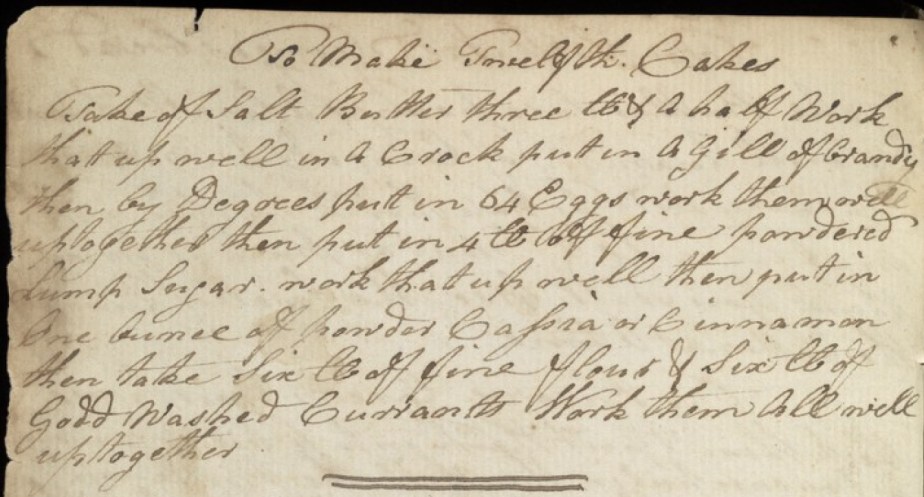 To Make Twelfth. Cakes
Take of Salt Butter three lb & a half Work
that up well in a Crock put in a Gill of brandy
then by Degrees put in 64 Eggs work them well
up together then put in 4 lb of fine powdered
Lump Sugar. work that up well then put in
One ounce of powder Cassia or Cinnamon
then take Six lb of fine flour & Six lb of
Godd Washed Currants Work them All well
up together